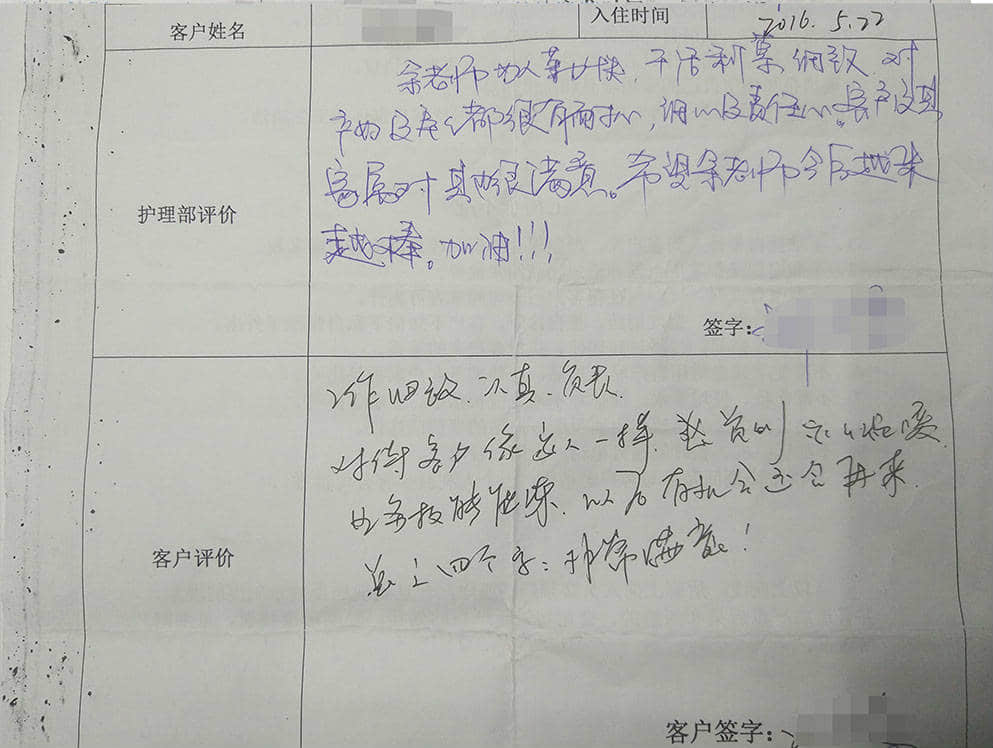 客户姓名 入住时间 2016.5.22
余老师为人勤快,干活利落细致,对
产妇及宝宝都很有耐心,细心及责任心。客户及其
护理部评价
家属对其也很满意。希望余老师今后越来
越棒。加油!!!
签字:
工作细致、认真、负责。
对待客户像家人一样,
业务技能性强,以后有机会还会再来。
客户评价
总之四个字:非常满意!
客户签字: